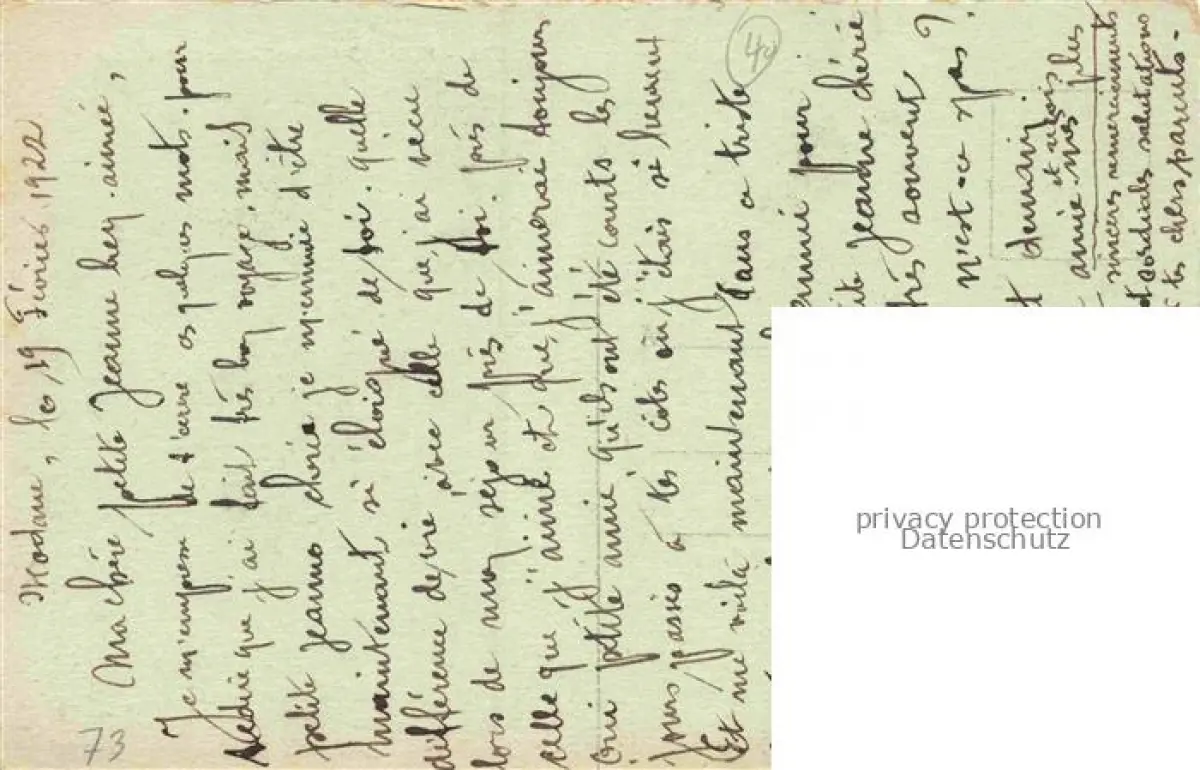 Modane, le 19 Février 1922
Ma chère petite Jeanne bien-aimée,
Je m'empresse de t'écrire ces quelques mots. pour
te dire que j'ai fait très bon voyage, mais
petite Jeanne chérie je m'ennuie d'être
maintenant si éloigné de toi. quelle
différence de vie avec celle que j'ai vécu
lors de mon séjour près de toi. près de
celle que j'aime et que j'aimerai toujours
Oui petite amie qu'ils ont été courts les
jours passés à tes côtés où j'étais si heureux
Et me voilà maintenant dans ce triste
pour
Jeanne chérie
très souvent
n'est-ce pas ?
demain
et reçois
amie mes plus
sincères remerciements
et cordiales salutations
à tes chers parents-
73
privacy protection
Datenschutz